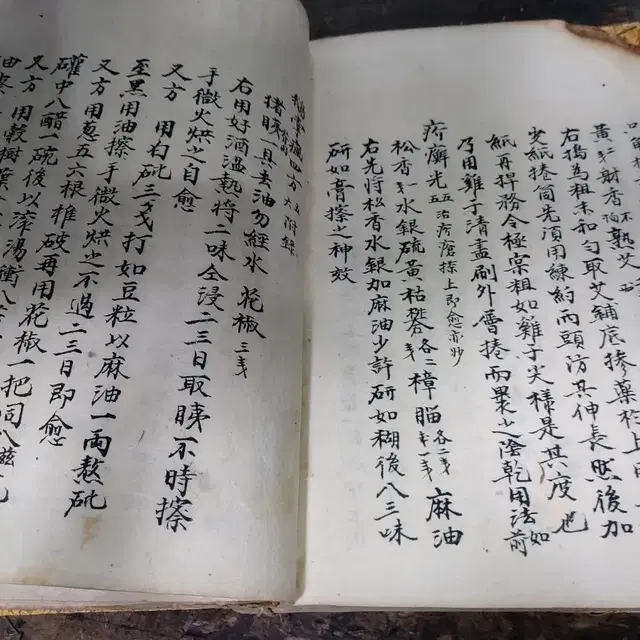 黃 射香 不熟艾
右搗為粗末和勻取艾鋪底摻藥於上
尖紙捲筒先須用練約兩頭防其伸長然後加
紙再捍務令極寔粗如雞子尖樣是其度也
乃用雞子清盡刷外層捲而裹之陰乾用法如前
疥癬光 五五 治疥瘡搽上即愈亦妙
松香 水銀 硫黃 枯礬 各二戔 樟腦 麻油
右先將松香水銀加麻油少許研如糊後入三味
研如膏搽之神效
鵝掌瘋四方 附錄
猪胰一具去油勿經水 花椒 三戔
右用好酒溫熱將二味仝浸二三日取胰不時搽
手微火烘之自愈
又方 用白砒三戔打如豆粒以麻油一兩熬砒
至黑用油搽手微火烘之不過二三日即愈
又方 用蔥五六根椎破再用花椒一把同入磁瓦
罐中入醋一碗後以滾湯衝入
又方 用穀樹葉